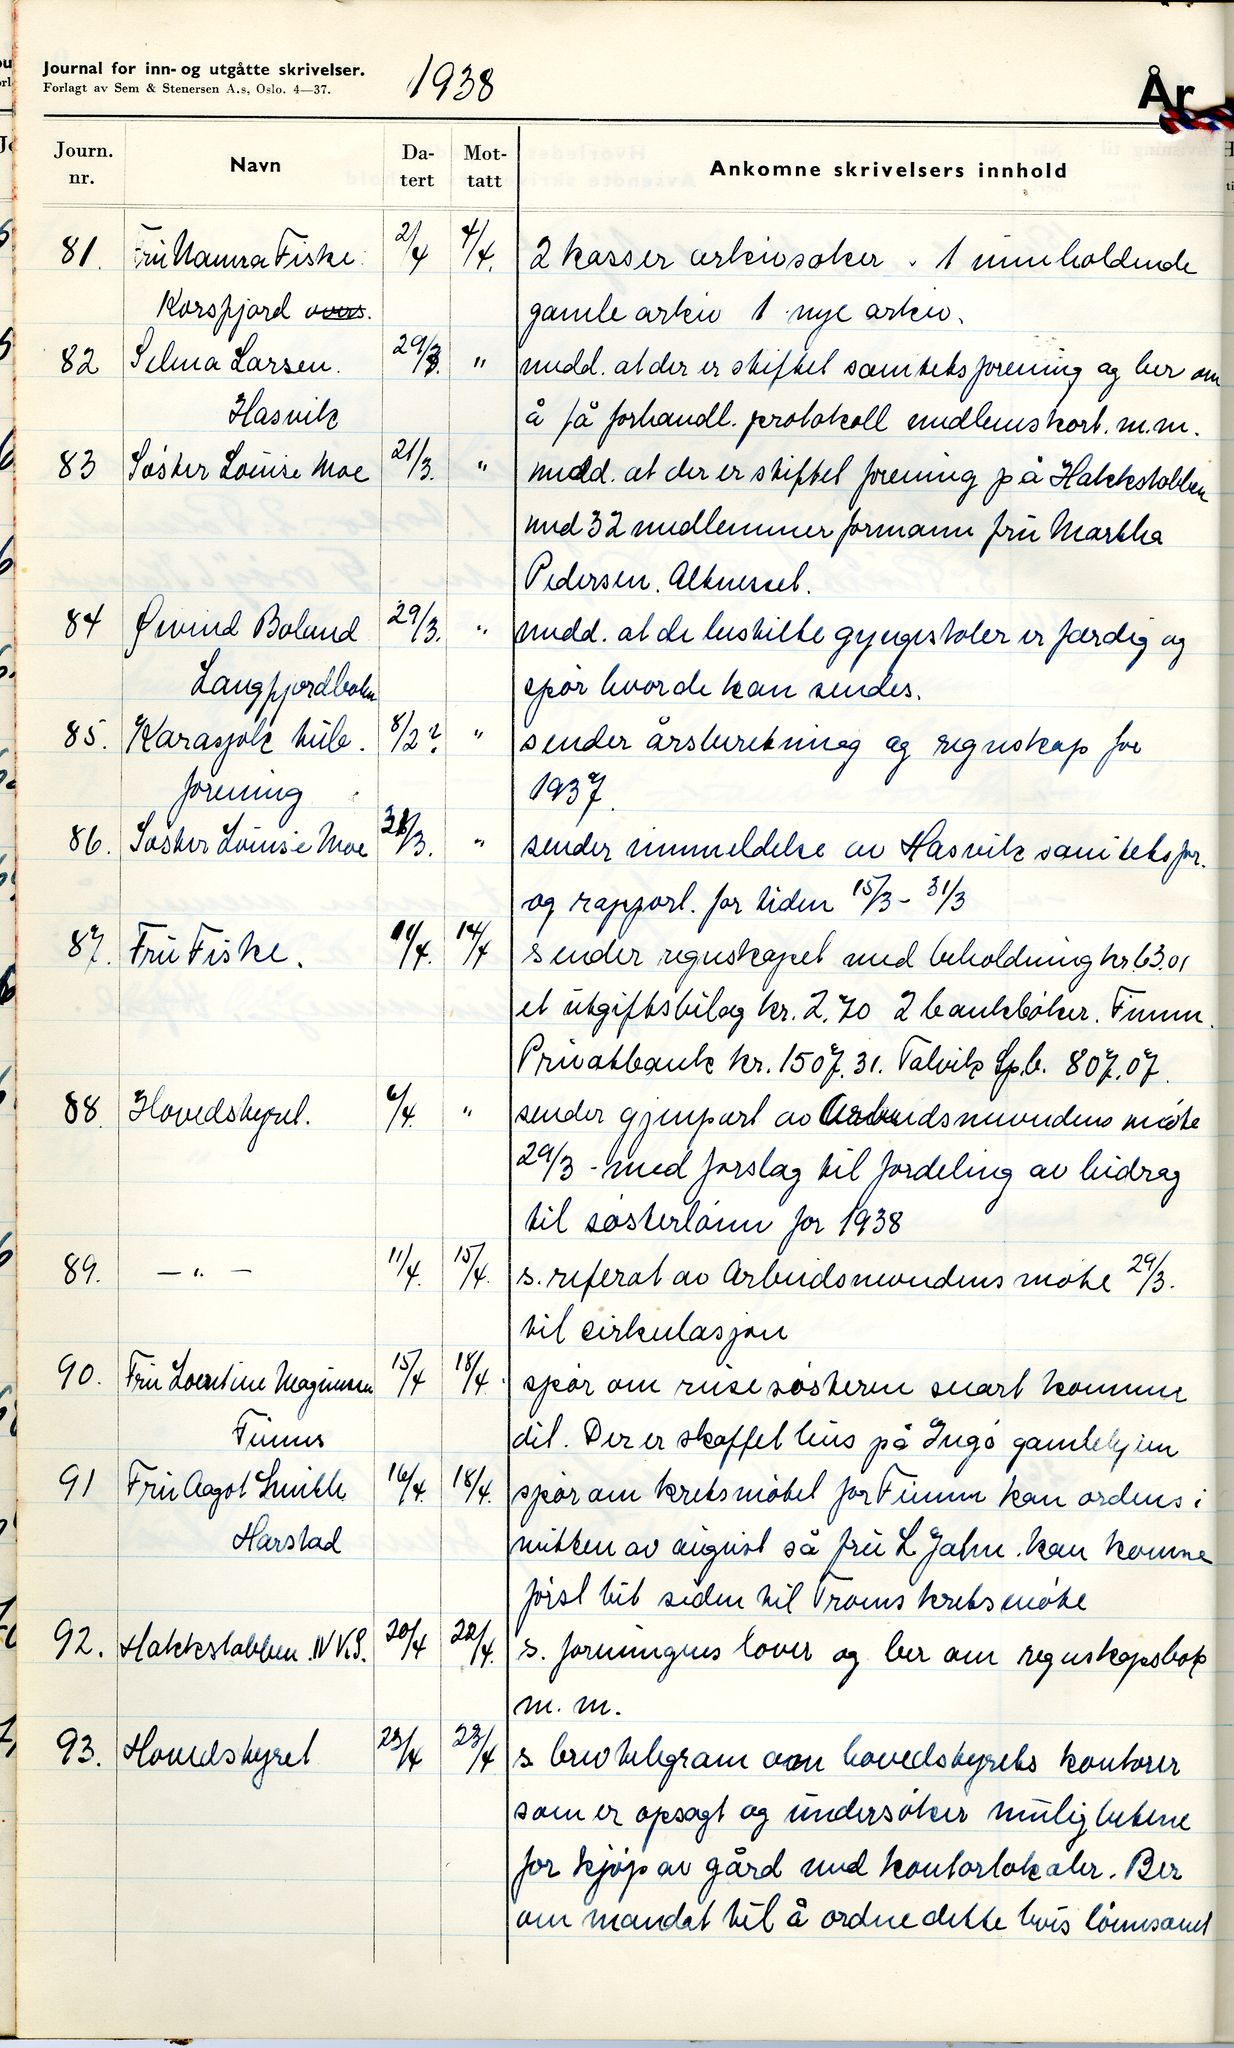 Journal for inn- og utgåtte skrivelser.
Forlagt av Sem & Stenersen A.s, Oslo. 4—37.
1938
År
Journ. nr. Navn Datert Mottatt Ankomne skrivelsers innhold
81. Fru Nanna Fiske 2/4 4/4. 2 kasser arkivsaker. 1 inneholdende
Korsfjord gamle arkiv 1 nye arkiv.
82 Selma Larsen. 29/3. " medd. at der er stiftet sanitetsforening og ber om
Hasvik å få forhandl. protokoll medlemskort. m.m.
83 Søster Louise Moe 21/3. " medd. at der er stiftet forening på Hakkstabben
med 32 medlemmer formann fru Martha
Pedersen. Altnesset.
84 Øivind Boland 29/3. " medd. at de bestilte gyngestoler er færdig og
Langfjordbotn spör hvor de kan sendes.
85. Karasjok tub. 8/2? " sender årsberetning og regnskap for
forening 1937.
86. Søster Louise Moe 31/3. " sender innmeldelse av Hasvik sanitetsfor.
og rapport. for tiden 15/3 - 31/3
87. Fru Fiske. 11/4. 14/4 sender regnskapet med beholdning kr. 63.01
et utgiftsbilag kr. 2.70 2 bankböker. Finnm.
Privatbank kr. 1507.31. Talvik Sp.b. 807.07.
88. Hovedstyret. 6/4. " sender gjenpart av Arbeidsnevndens möte
29/3 - med forslag til fordeling av bidrag
til sösterlönn for 1938
89. — " — 11/4. 15/4. s. referat av Arbeidsnevndens möte 29/3.
til cirkulasjon
90. Fru Leontine Magnussen 15/4 18/4. spör om reisesösteren snart kommer
Finnes dit. Der er skaffet hus på Ingö gamlehjem
91 Fru Aagot Smith 16/4. 18/4. spör om kretsmötet for Finnm kan ordens i
Harstad mitten av august så fru L Jahn. kan komme
först hit siden til Troms kretsmöte
92. Hakkstabben N.K.S. 20/4 22/4. s. foreningens lover og ber om regnskapsbok
m. m.
93. Hovedstyret 23/4 23/4 s brevtelegram om hovedstyrets kontorer
som er opsagt og undersöker mulighetene
for kjöp av gård med kontorlokaler. Ber
om mandat til å ordne dette hvis lönnsomt